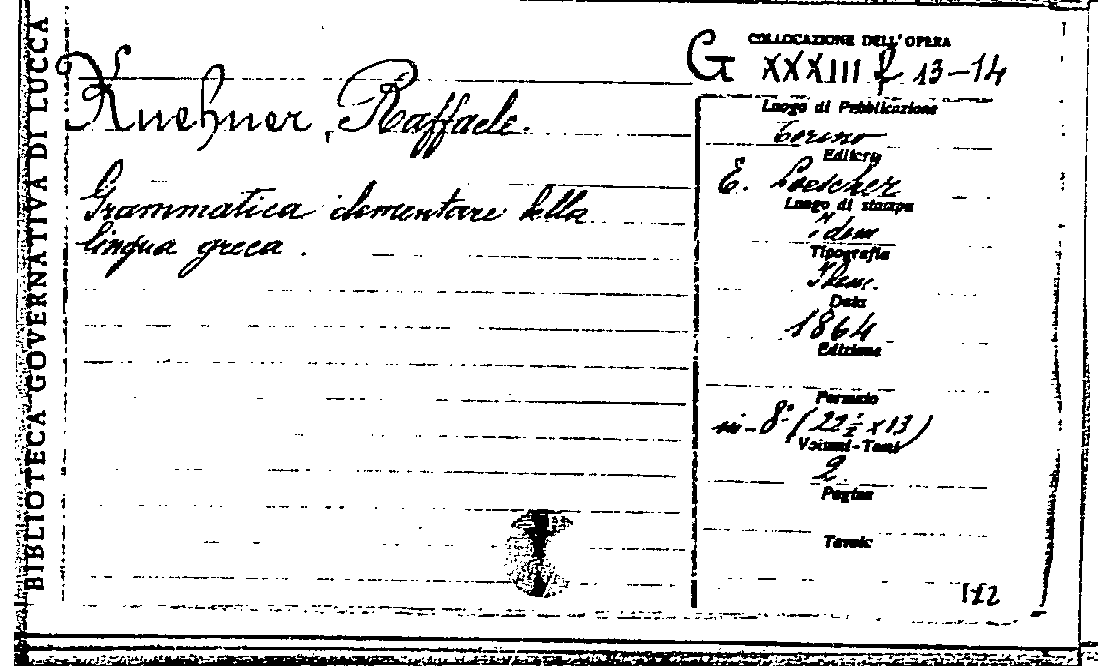 BIBLIOTECA GOVERNATIVA DI LUCCA
Kuehner, Raffaele.
Grammatica elementare della
lingua greca.
COLLOCAZIONE DELL'OPERA
G XXXIII f 13-14
Luogo di Pubblicazione
Torino
Editore
E. Loescher
Luogo di stampa
Idem
Tipografia
Idem.
Data
1864
Edizione
Formato
in-8° (22½ x 13)
Volumi-Tomi
2.
Pagine
Tavole
112